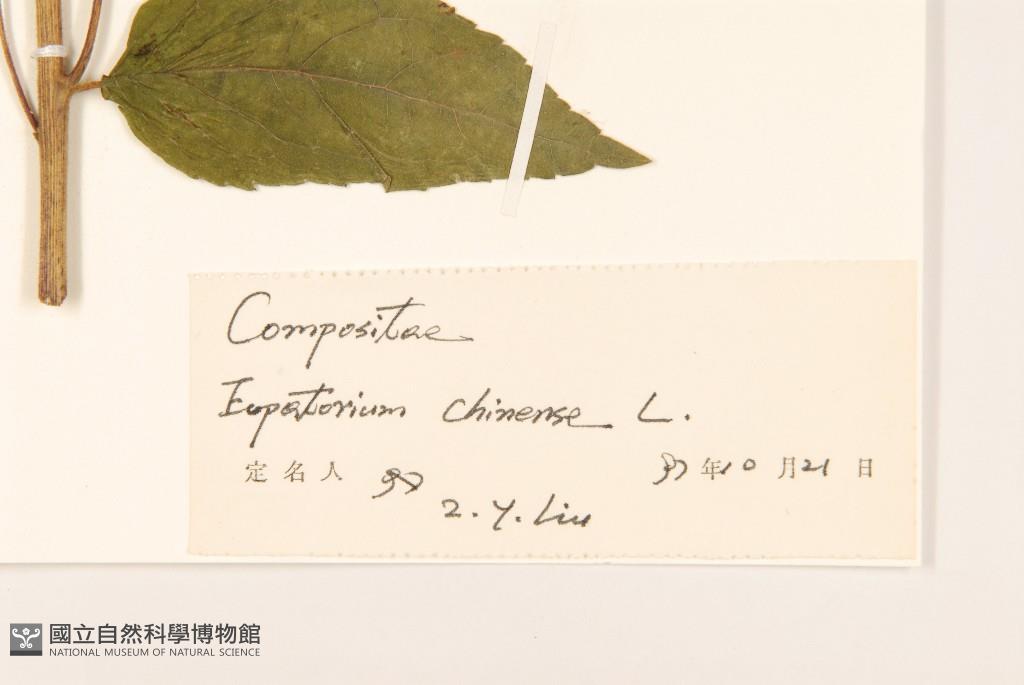 Compositae
Eupatorium chinense L.
定名人 年10月21日
Z. Y. Liu
國立自然科學博物館
NATIONAL MUSEUM OF NATURAL SCIENCE